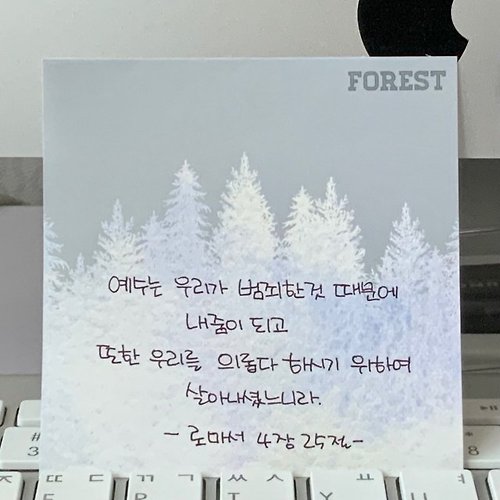 FOREST
예수는 우리가 범죄한것 때문에
내줌이 되고
또한 우리를 의롭다 하시기 위하여
살아나셨느니라.
- 로마서 4장 25절 -
#
3
ㄸ ㄷ ㄲ ㄱ ㅆ ㅅ ㅛ ㅕ
E R T Y U